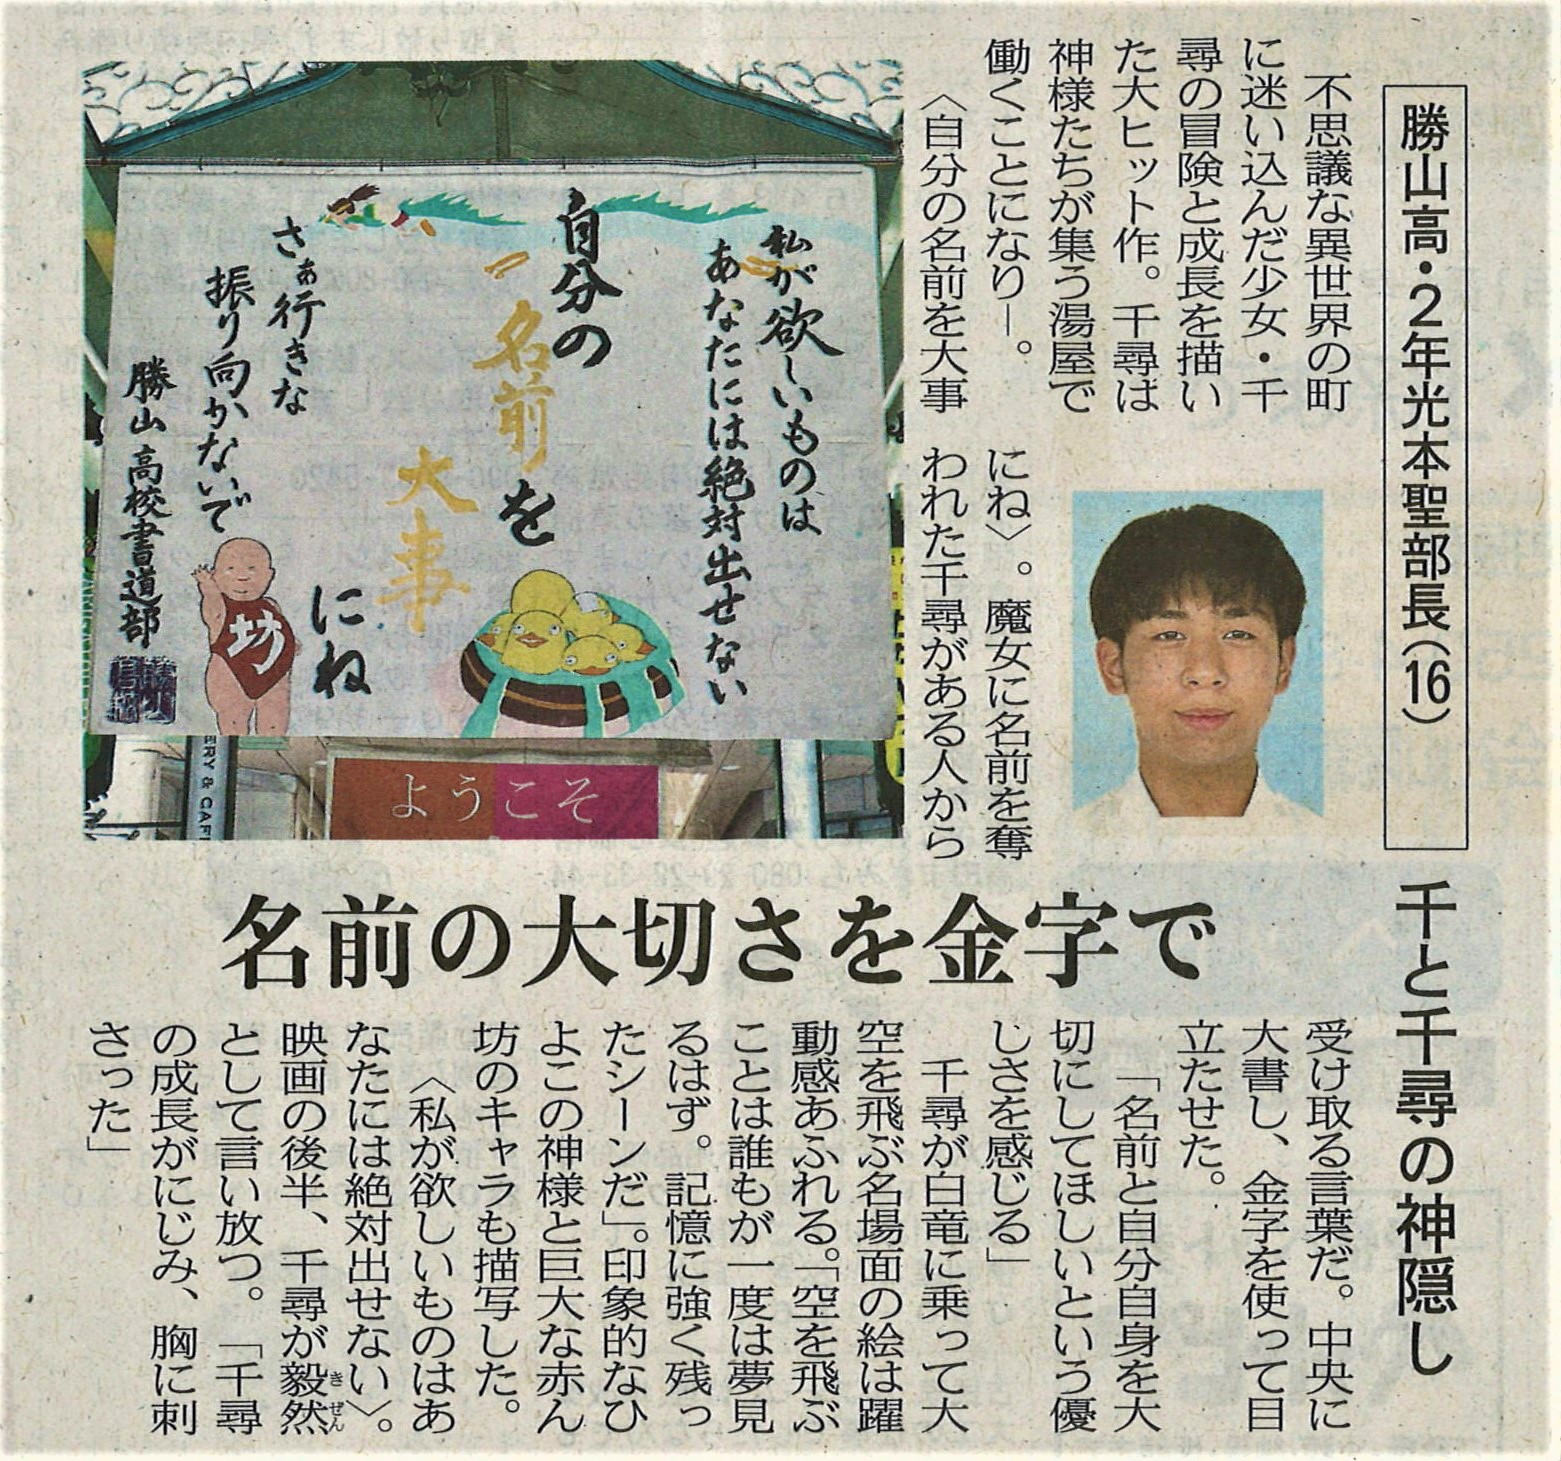 勝山高・2年光本聖部長(16)
千と千尋の神隠し
名前の大切さを金字で
　不思議な異世界の町
に迷い込んだ少女・千
尋の冒険と成長を描い
た大ヒット作。千尋は
神様たちが集う湯屋で
働くことになり―。
　〈自分の名前を大事
にね〉。魔女に名前を奪
われた千尋がある人から
受け取る言葉だ。中央に
大書し、金字を使って目
立たせた。
　「名前と自分自身を大
切にしてほしいという優
しさを感じる」
　千尋が白竜に乗って大
空を飛ぶ名場面の絵は躍
動感あふれる。「空を飛ぶ
ことは誰もが一度は夢見
るはず。記憶に強く残っ
たシーンだ」。印象的なひ
よこの神様と巨大な赤ん
坊のキャラも描写した。
　〈私が欲しいものはあ
なたには絶対出せない〉。
映画の後半、千尋が毅然
きぜん
として言い放つ。「千尋
の成長がにじみ、胸に刺
さった」
私が欲しいものは
あなたには絶対出せない
自分の
名前を
大事
にね
さぁ行きな
振り向かないで
勝山高校書道部
坊
ようこそ
ERY & CAF